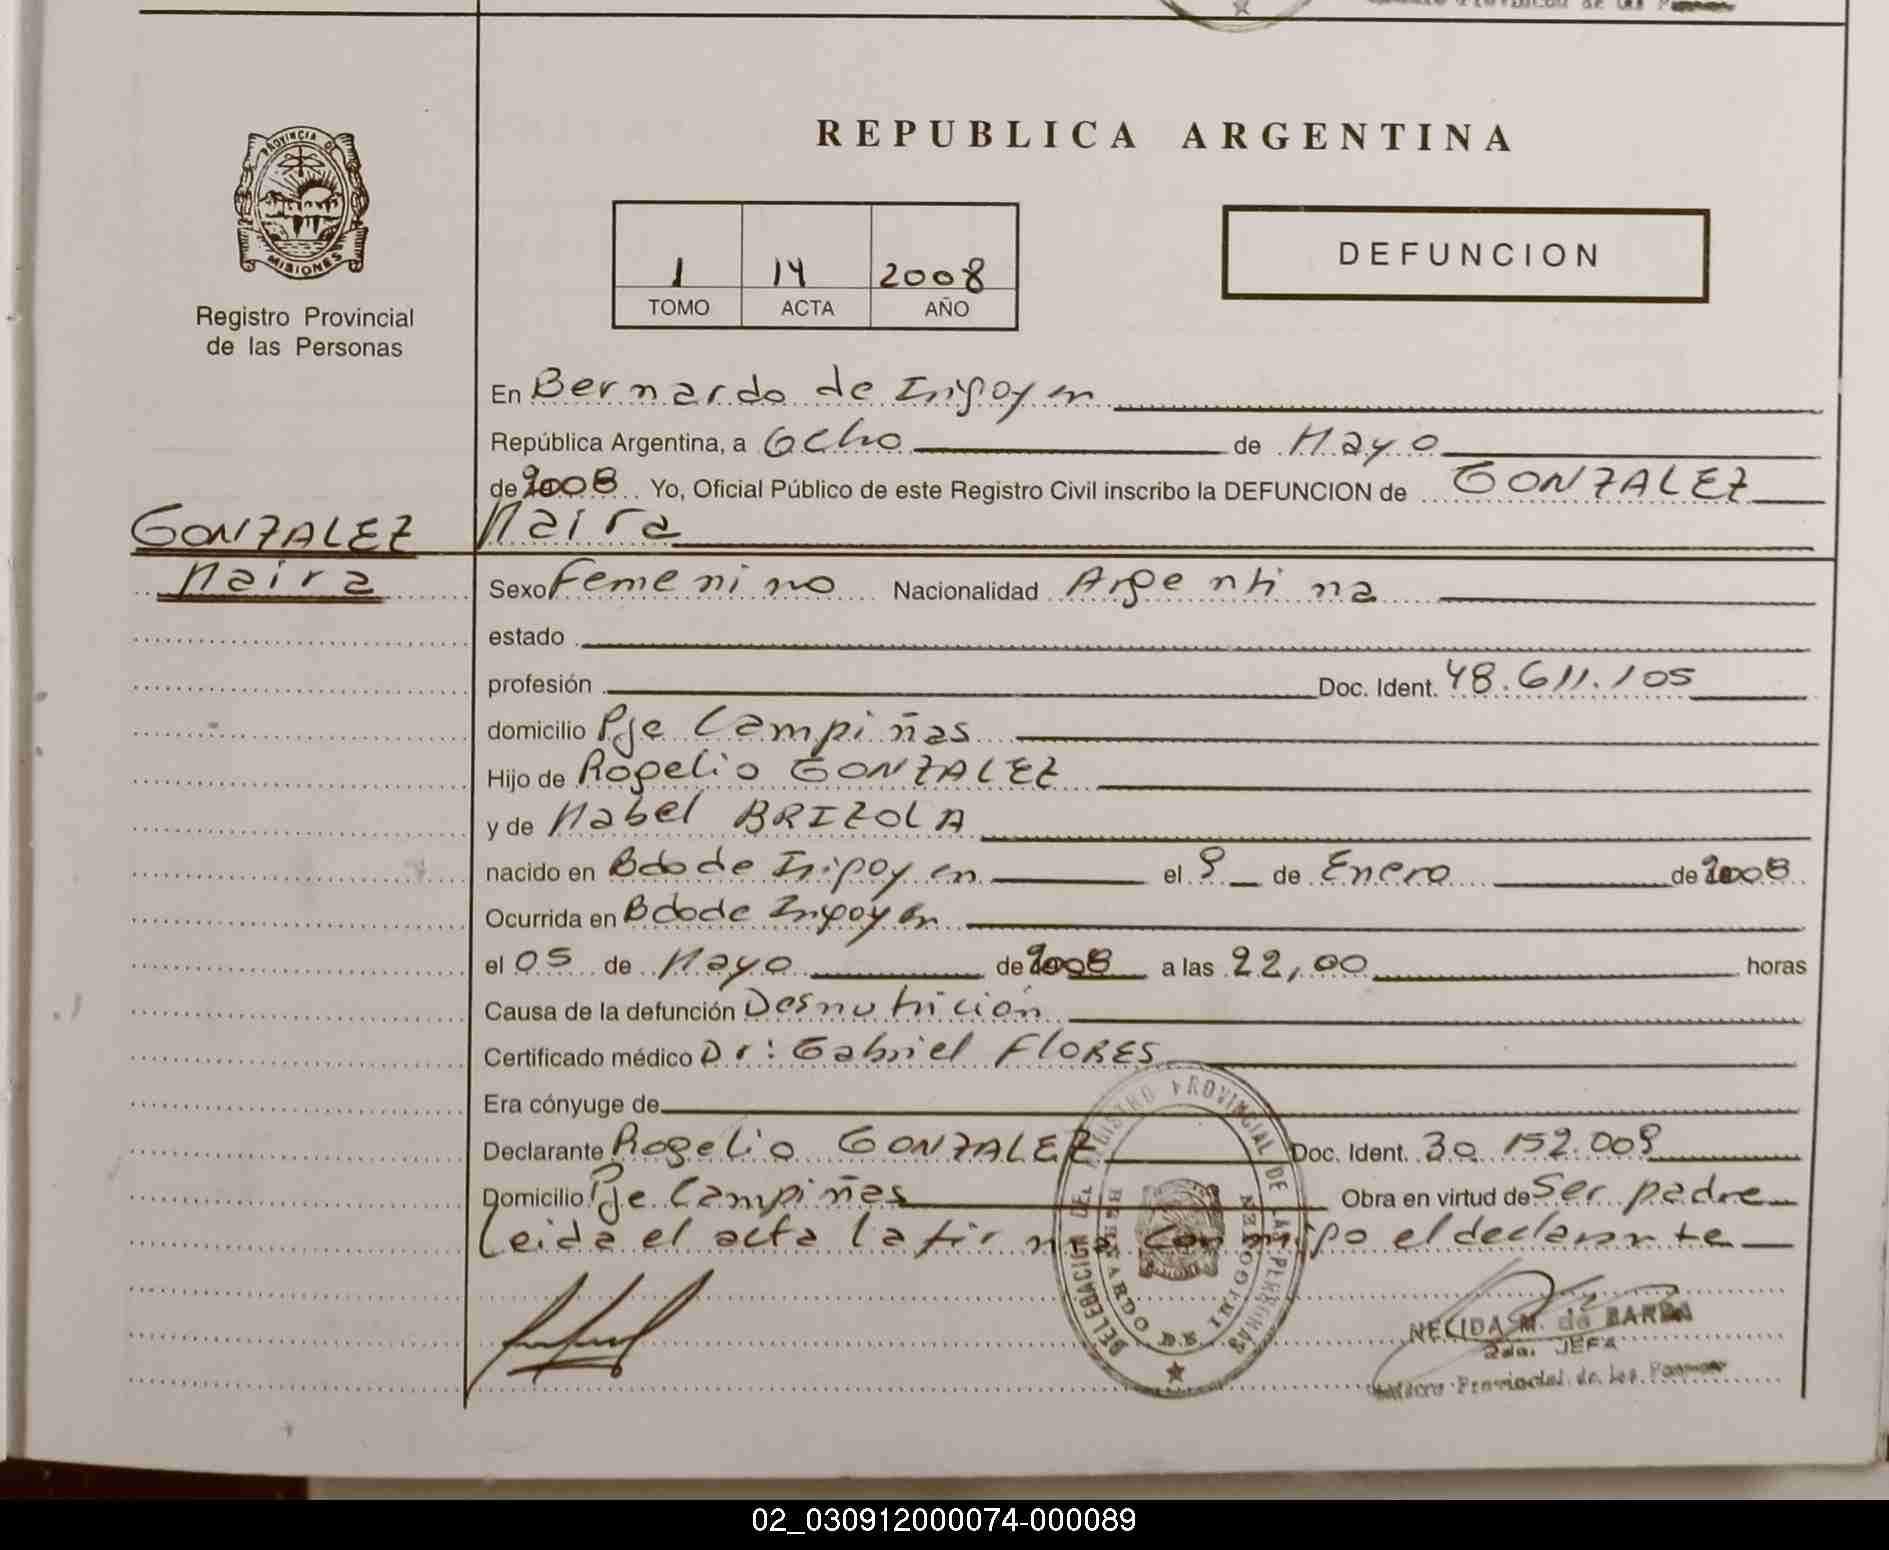 PROVINCIA DE
MISIONES
Registro Provincial
de las Personas
REPUBLICA ARGENTINA
1 14 2008
TOMO ACTA AÑO
DEFUNCION
En Bernardo de Irigoyen
República Argentina, a Ocho de Mayo
de 2008 Yo, Oficial Público de este Registro Civil inscribo la DEFUNCION de GONZALEZ
Maira
GONZALEZ
Maira
Sexo Femenino Nacionalidad Argentina
estado
profesión Doc. Ident. 48.611.105
domicilio Pje Campiñas
Hijo de Rogelio GONZALEZ
y de Mabel BRIZOLA
nacido en Bdo de Irigoyen el 9 de Enero de 2008
Ocurrida en Bdo de Irigoyen
el 05 de Mayo de 2008 a las 22,00 horas
Causa de la defunción Desnutrición
Certificado médico Dr: Gabriel FLORES
Era cónyuge de
Declarante Rogelio GONZALEZ Doc. Ident. 30.152.009
Domicilio Pje Campiñas Obra en virtud de Ser padre
Leida el acta la firma conmigo el declarante
DELEGACION DEL REGISTRO PROVINCIAL DE LAS PERSONAS
BERNARDO DE IRIGOYEN
NELIDA M. de
2da. JEFA
Provincial de las
02_030912000074-000089